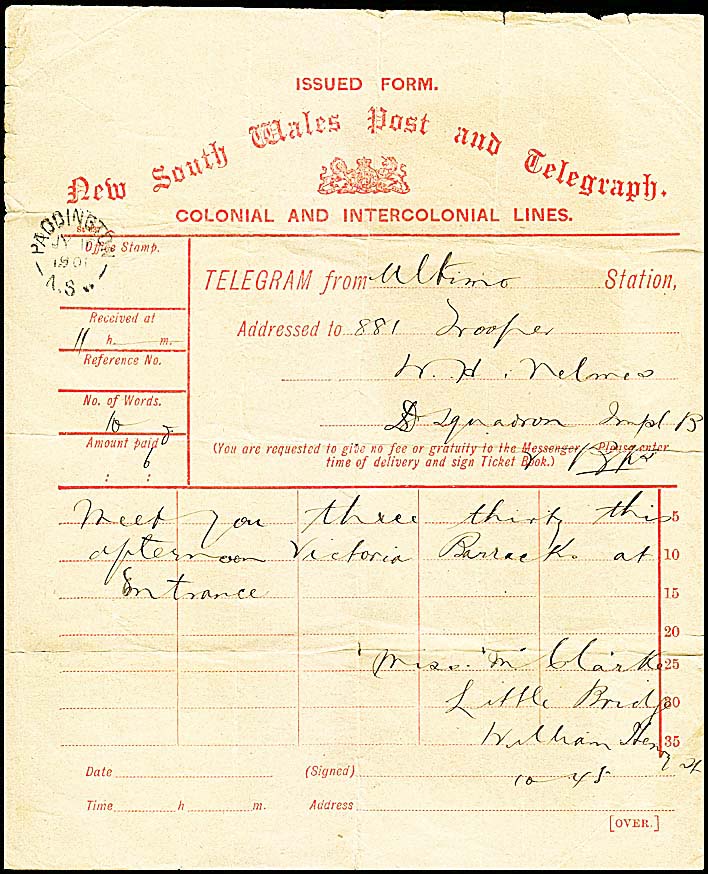 ISSUED FORM.
New South Wales Post and Telegraph.
COLONIAL AND INTERCOLONIAL LINES.
PADDINGTON
JY 10
1901
Office Stamp.
TELEGRAM from Ultimo Station,
Received at
11 h. m.
Addressed to 881 Trooper
Reference No.
W. H. Nelmes
No. of Words.
10
D Squadron Impl B
Amount paid
(You are requested to give no fee or gratuity to the Messenger. Please enter
time of delivery and sign Ticket Book.)
Meet you three thirty this 5
afternoon Victoria Barracks at 10
Entrance 15
20
Miss "M" Clarke 25
Little Bridge 30
William Henry St 35
Date (Signed)
10 45
Time h m. Address
[OVER.]